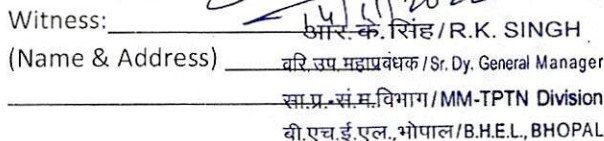 14/11/202
Witness: आर. के. सिंह / R.K. SINGH
(Name & Address) वरि. उप महाप्रबंधक / Sr. Dy. General Manager
सा.प्र.-सं.म. विभाग / MM-TPTN Division
बी.एच.ई.एल., भोपाल / B.H.E.L., BHOPAL